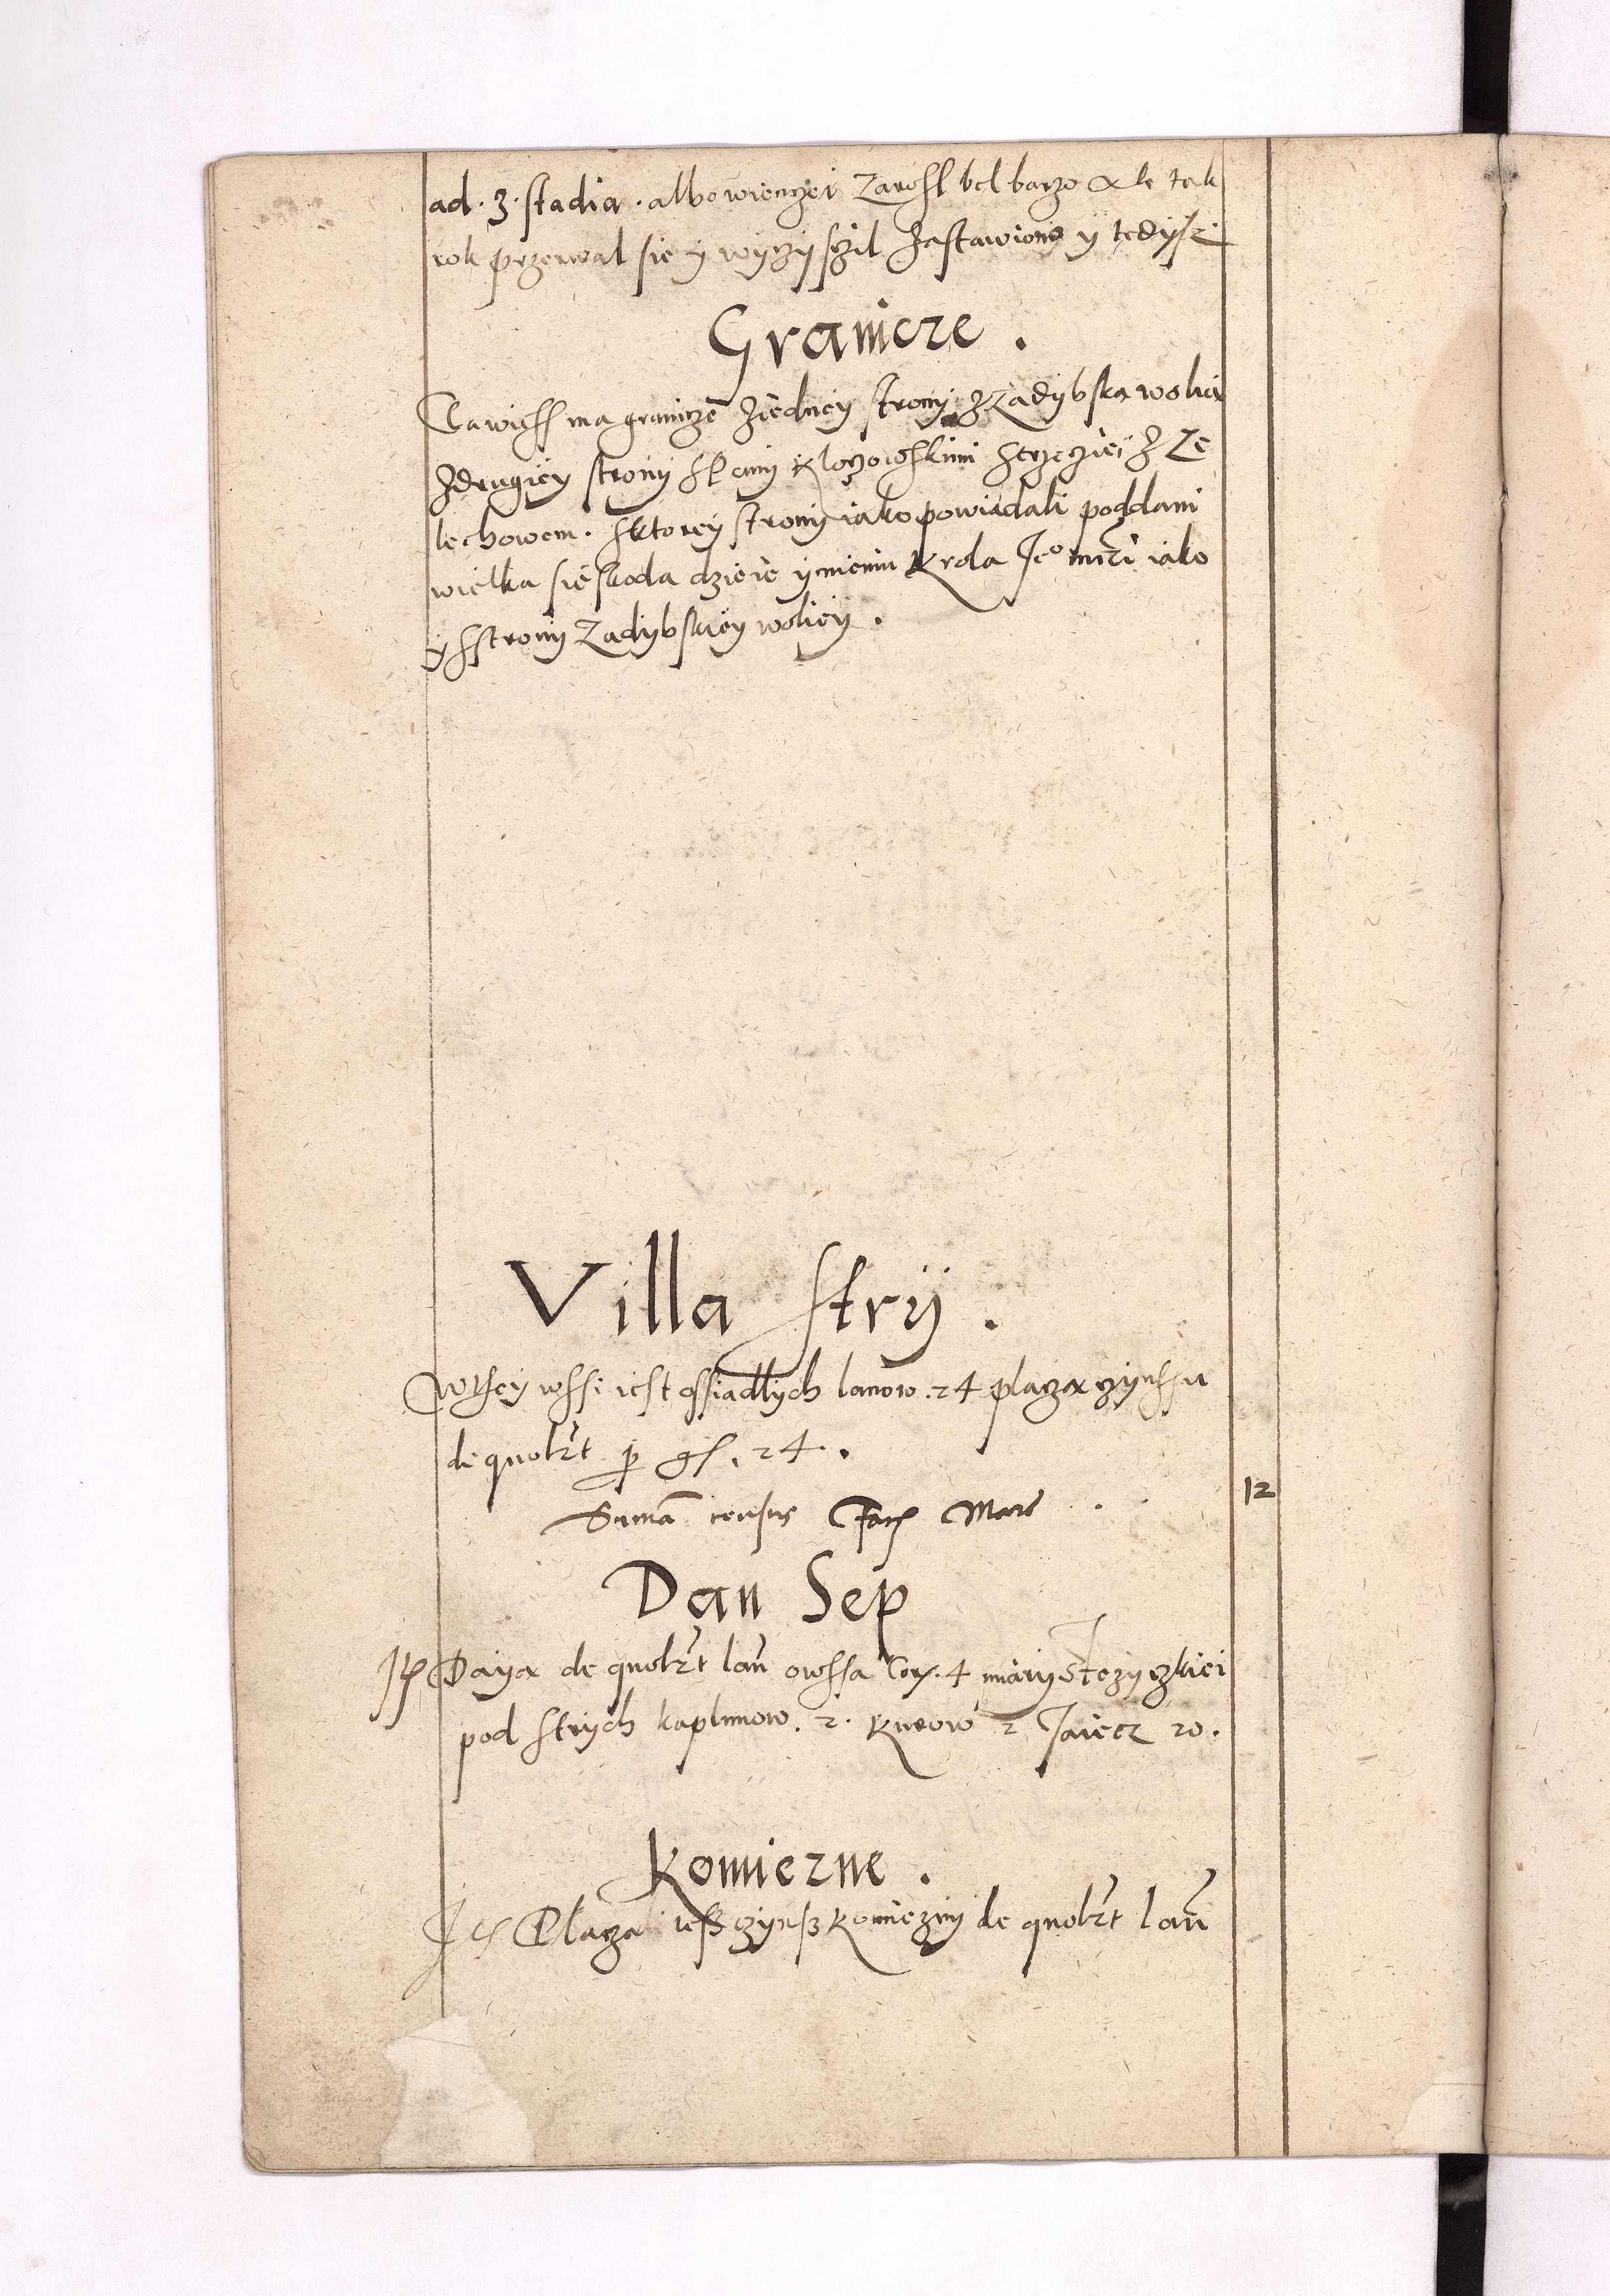 ad · 3 · stadia · albo wienczei Zarosl bel barzo ale tak
rok przerwal sie y wyczysczil zastawiono y tedysz
Granicze .
Ta wiess ma granicze ziedney strony z Zadybska wolia
zdrugiey strony sPany Kloczowskimi strzeciei z Ze
lechowem . sktorey strony iako powiadali poddani
wielka sie skoda dzieie ymieniu Krola Jeo mczi iako
y sstrony Zadybskiey woliey .
Villa Stryj .
Wthey wssi iest ossiadlych lanow 24 placza czynssu
de quolzt p gs . 24 .
Suma census fac Marc . . 12
Dan Sep
Jt Daya de quolzt lan owssa Cor. 4 miary Stezyczkiei
pod strych kaplunow . 2 . kurow 2 Jaiecz 20 .
Komierne .
Jt Placza czynsz Komiezny de quolzt lan